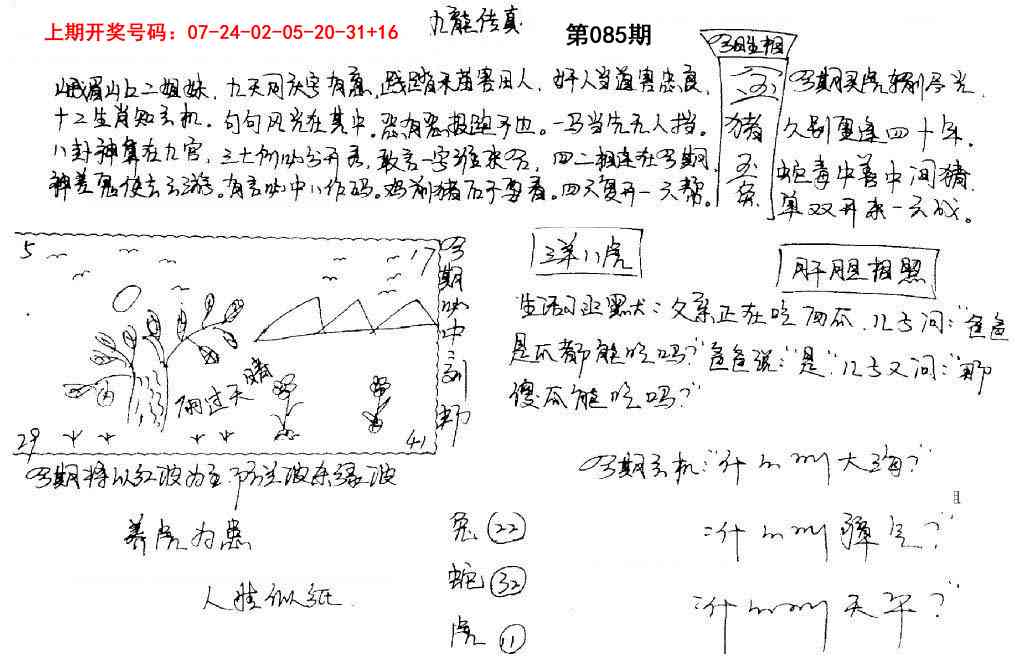 上期开奖号码：07-24-02-05-20-31+16
九龍传真
第085期
今期生相
峨眉山上二姐妹，九天同庆字有意，践踏禾苗害田人，奸人当道害忠良，
十二生肖知玄机。句句风光在其中。恶有恶报跑不也。一马当先无人挡。
八卦神算在九宫，三七例以分开看，敢言一字谁来名，四二相连在今期，
神差鬼使去云游。有言以中八作码。鸡前猪后于要看。四六复开一六帮。
玄
猪
玉
兔
今期买虎输尽光，
久别重逢四十年。
蛇毒中兽中间猪，
单双开来一云成。
5
17
29
41
雨过天晴
三羊八虎
肝胆相照
生活习班默大：父亲正在吃西瓜，儿子问："爸爸
是瓜都能吃吗？"爸爸说："是"，儿子又问："那
傻瓜能吃吗？"
今期将以红波为主，防兰波和绿波
今期玄机："什么叫大海？"
："什么叫障气？"
："什么叫天平？"
养虎为患
人情似纸
兔 22
蛇 32
虎 11